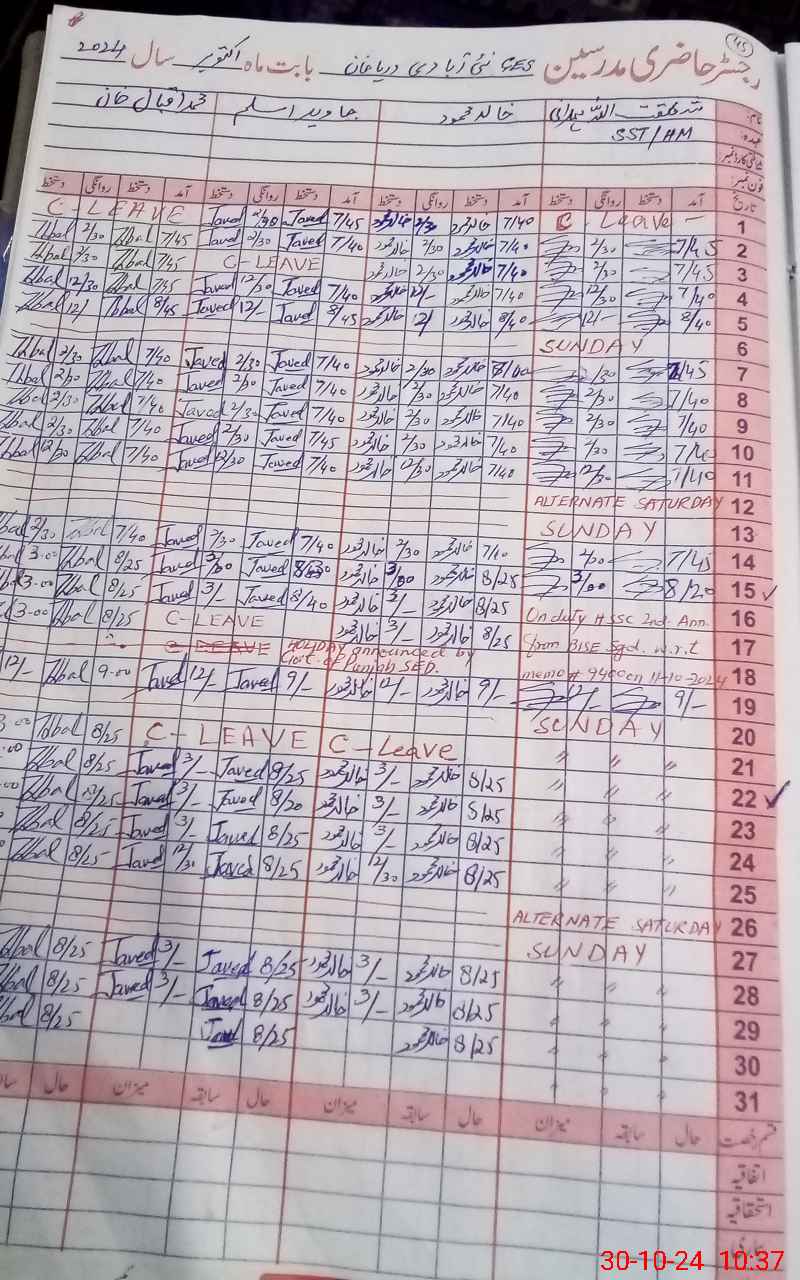 45
رجسٹر حاضری مدرسین GES نئی آبادی دریا خان بابت ماہ اکتوبر سال 2024
نام شفقت اللہ خالد محمود جاوید اسلم محمد اقبال خان
عہدہ SST/HM
فون نمبر
تاریخ آمد دستخط روانگی دستخط آمد دستخط روانگی دستخط آمد دستخط روانگی دستخط آمد دستخط روانگی دستخط
1 C-Leave 7/40 خالد محمود 2/30 خالد محمود 7/45 Javed 2/30 Javed C-LEAVE
2 7/45 2/30 7/40 خالد محمود 2/30 خالد محمود 7/40 Javed 2/30 Javed 7/45 Iqbal 2/30 Iqbal
3 7/45 2/30 7/40 خالد محمود 2/30 خالد محمود C-LEAVE 7/45 Iqbal 2/30 Iqbal
4 7/40 12/30 7/40 خالد محمود 12/- خالد محمود 7/40 Javed 12/30 Javed 7/45 Iqbal 12/30 Iqbal
5 8/40 12/- 8/40 خالد محمود 12/ خالد محمود 8/45 Javed 12/- Javed 8/45 Iqbal 12/ Iqbal
6 SUNDAY
7 7/45 /30 خالد محمود 2/30 خالد محمود 7/40 Javed 2/30 Javed 7/40 Iqbal 2/30 Iqbal
8 7/40 2/30 7/40 خالد محمود 2/30 خالد محمود 7/40 Javed 2/30 Javed 7/40 Iqbal 2/30 Iqbal
9 7/40 2/30 7/40 خالد محمود 2/30 خالد محمود 7/40 Javed 2/30 Javed 7/40 Iqbal 2/30 Iqbal
10 7/40 2/30 7/40 خالد محمود 2/30 خالد محمود 7/45 Javed 2/30 Javed 7/40 Iqbal 2/30 Iqbal
11 7/40 12/30 7/40 خالد محمود 12/30 خالد محمود 7/40 Javed 12/30 Javed 7/40 Iqbal 12/30 Iqbal
12 ALTERNATE SATURDAY
13 SUNDAY
14 7/45 2/30 7/40 خالد محمود 2/30 خالد محمود 7/40 Javed 2/30 Javed 7/40 Iqbal 2/30 Iqbal
15 8/20 3/00 8/25 خالد محمود 3/00 خالد محمود Javed 3/00 Javed 8/25 Iqbal 3-00
16 On duty HSSC 2nd. Ann. 8/25 خالد محمود 3/- خالد محمود 8/40 Javed 3/- Javed 8/25 Iqbal 3-00
17 from BISE Sgd. w.r.t 8/25 خالد محمود 3/- خالد محمود C-LEAVE 8/25 Iqbal 3-00
18 memo # 9400 on 11-10-2024 HOLIDAY announced by Govt. of Punjab SED. C-LEAVE
19 9/- 12/- 9/- خالد محمود 12/- خالد محمود 9/- Javed 12/- Javed 9-00 Iqbal 12/-
20 SUNDAY
21 〃 〃 〃 C-Leave C-LEAVE 8/25 Iqbal
22 〃 〃 〃 8/25 خالد محمود 3/- خالد محمود 8/25 Javed 3/- Javed 8/25 Iqbal
23 〃 〃 〃 خالد محمود 3/- خالد محمود 8/20 Javed 3/- Javed Iqbal
24 〃 〃 〃 8/25 خالد محمود 3/- خالد محمود 8/25 Javed 3/- Javed 8/25 Iqbal
25 〃 〃 〃 8/25 خالد محمود 12/30 خالد محمود 8/25 Javed 12/30 Javed 8/25 Iqbal
26 ALTERNATE SATURDAY
27 SUNDAY
28 〃 〃 〃 8/25 خالد محمود 3/- خالد محمود 8/25 Javed 3/- Javed 8/25 Iqbal
29 〃 〃 〃 8/25 خالد محمود 3/- خالد محمود 8/25 Javed 3/- Javed 8/25 Iqbal
30 〃 〃 〃 8/25 خالد محمود 8/25 Javed 8/25 Iqbal
31 〃 〃 〃
قسم رخصت حال سابقہ میزان حال سابقہ میزان حال سابقہ میزان حال
اتفاقیہ
استحقاقیہ
بیماری
30-10-24 10:37